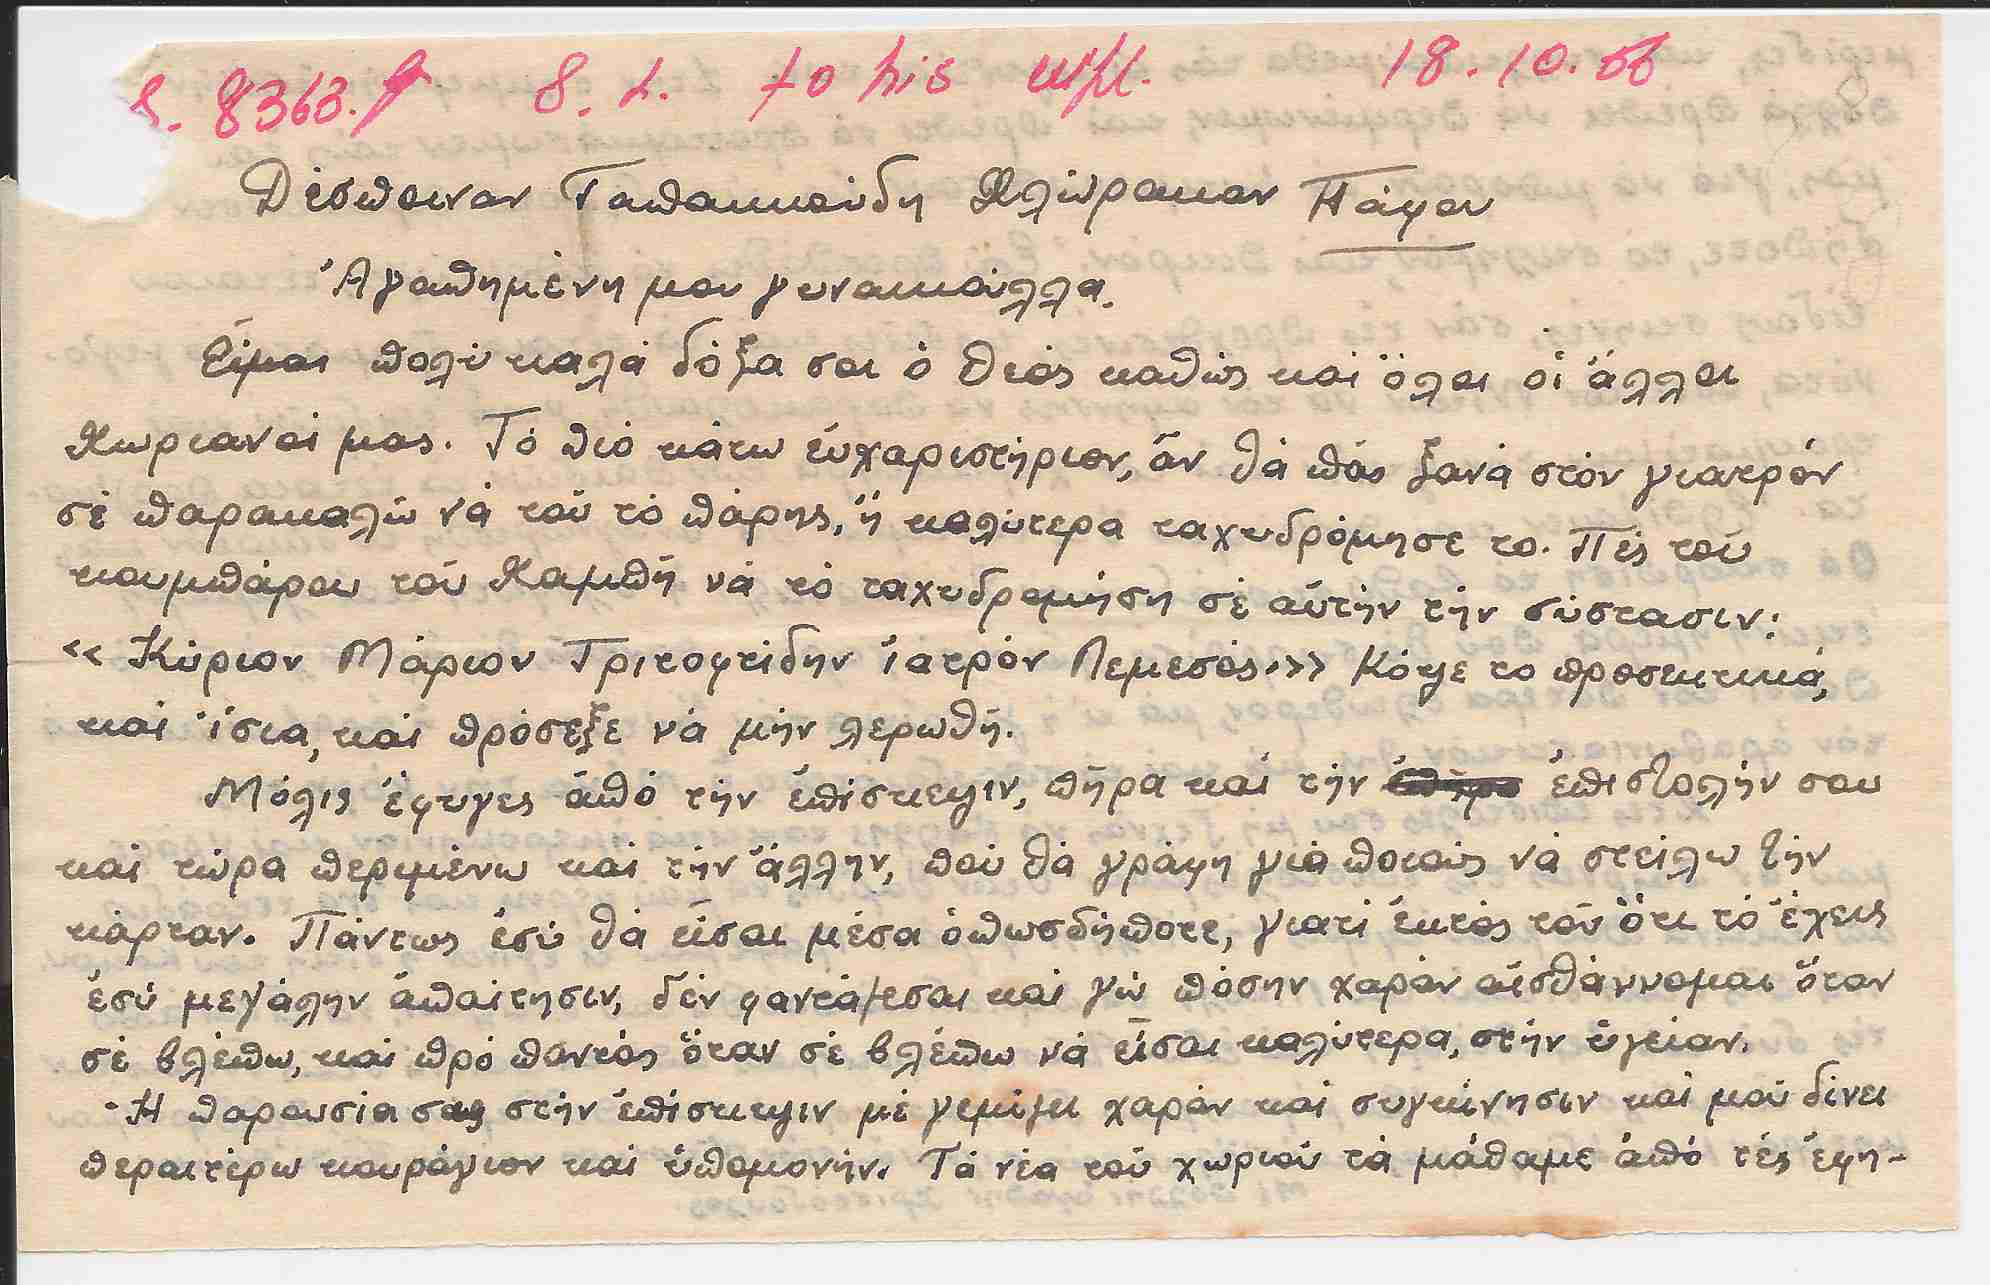 8363. S. L. to his wife. 18.10.56
Δέσποιναν Ταπακκούδη Χλώρακαν Πάφου
Ἀγαπημένη μου γυνακούλλα.
Εἶμαι πολύ καλά δόξα σοι ὁ θεός καθώς καί ὅλοι οἱ ἄλλοι
Χωριανοί μας. Τό πιό κάτω εὐχαριστήριον, ἄν θά πᾶς ξανά στόν γιατρόν
σέ παρακαλῶ νά τοῦ τό πάρης, ἤ καλύτερα ταχυδρόμησε το. Πές τοῦ
κουμπάρου τοῦ Χαμπῆ νά τό ταχυδρομήση σέ αὐτήν τήν σύστασιν:
«Κύριον Μάριον Τριτοφτίδην ἰατρόν Λεμεσός.» Κόψε το προσεκτικά,
καί ἴσια, καί πρόσεξε νά μήν λερωθῆ.
Μόλις ἔφυγες ἀπό τήν ἐπίσκεψιν, πῆρα καί τήν ἐπιστολήν σου
καί τώρα περιμένω καί τήν ἄλλην, πού θά γράφη γιά ποιούς νά στείλω τήν
κάρταν. Πάντως ἐσύ θά εἶσαι μέσα ὁπωσδήποτε, γιατί ἐκτός τοῦ ὅτι τό ἔχεις
ἐσύ μεγάλην ἀπαίτησιν, δέν φαντάζεσαι καί γώ πόσην χαράν αἰσθάννομαι ὅταν
σέ βλέπω, καί πρό παντός ὅταν σέ βλέπω νά εἶσαι καλύτερα, στήν ὑγείαν.
Ἡ παρουσία σας στήν ἐπίσκεψιν μέ γεμίζει χαράν καί συγκίνησιν καί μοῦ δίνει
περαιτέρω κουράγιον καί ὑπομονήν. Τά νέα τοῦ χωριοῦ τά μάθαμε ἀπό τές ἐφη-